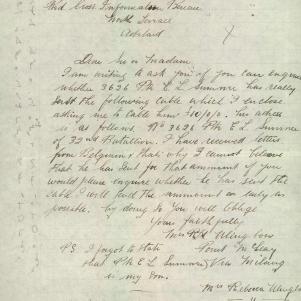 Red Cross Information Bureau
North Terrace
Adelaide
Dear Sir or Madam
I am writing to ask you if you can enquire
whether 3626 Pte E L Summer has really
sent the following cable which I enclose
asking me to cable him £10/0/0. His adress
is as follows. No 3626 Pte E. L. Summer
of 32nd Battallion. I have received letters
from Belgium, thats why I cannot believe
that he has sent for that ammount if you
would please enquire whether he has sent the
cable I will send the ammount as early as
possible. by doing so you will oblige
Yours faithfully
Mrs
P.S. I forgot to state Point McLeay
that Pte E L Summer Via Milang
is my Son.
Mrs Rebecca